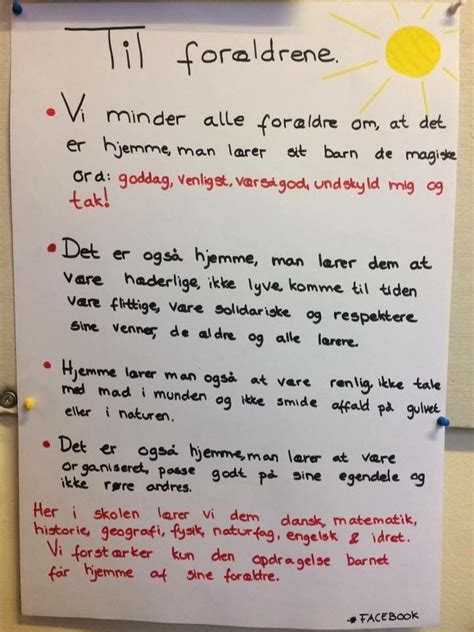 Til forældrene.
• Vi minder alle forældre om, at det
er hjemme, man lærer sit barn de magiske
ord: goddag, venligst, værsågod, undskyld mig og
tak!
• Det er også hjemme, man lærer dem at
være hæderlige, ikke lyve, komme til tiden
være flittige, være solidariske og respektere
sine venner, de ældre og alle lærere.
• Hjemme lærer man også at være renlig, ikke tale
med mad i munden og ikke smide affald på gulvet
eller i naturen.
• Det er også hjemme, man lærer at være
organiseret, passe godt på sine egendele og
ikke røre andres.
Her i skolen lærer vi dem dansk, matematik,
historie, geografi, fysik, naturfag, engelsk & idræt.
Vi forstærker kun den opdragelse barnet
får hjemme af sine forældre.
*FACEBOOK